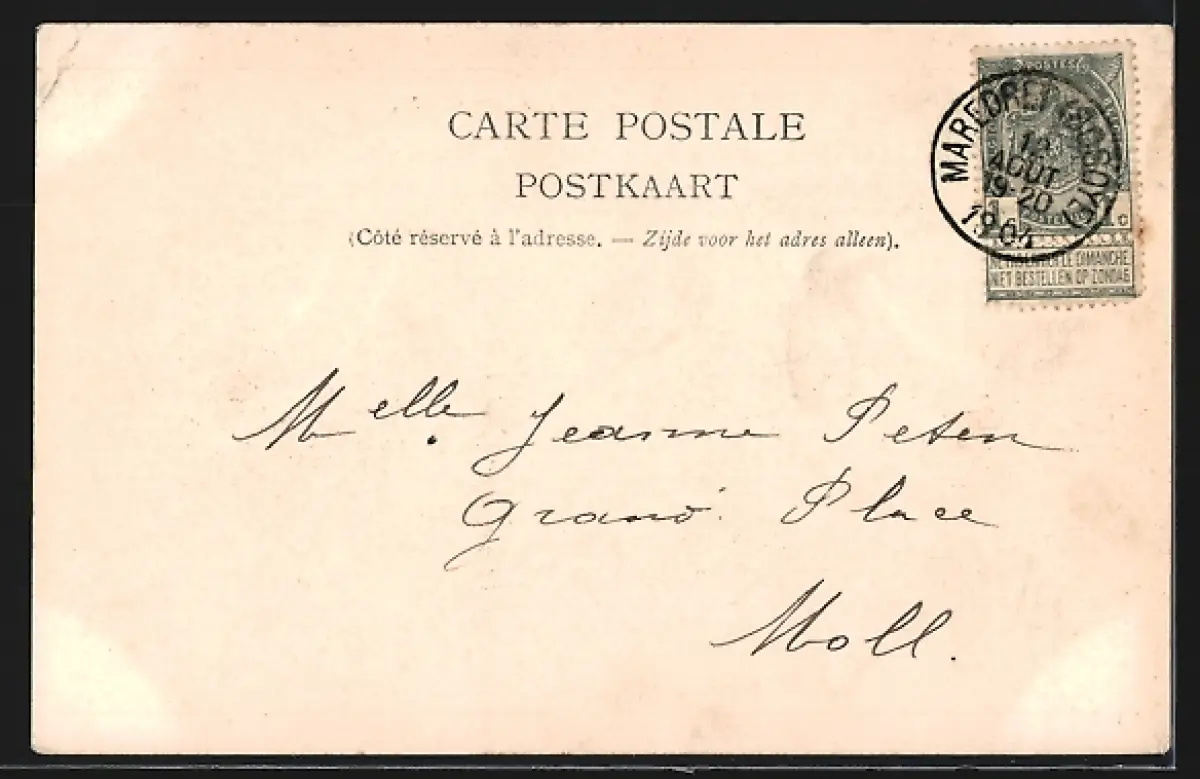 CARTE POSTALE
POSTKAART
(Côté réservé à l'adresse. — Zijde voor het adres alleen).
POSTES
MAREDRET (SOSOYE)
AOUT
19-20
1904
LE DIMANCHE
NIET BESTELLEN OP ZONDAG
Melle Jeanne Peten
Grand' Place
Moll.